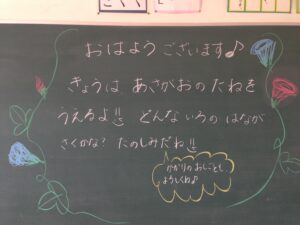 おはようございます♪
きょうは あさがおのたねを
うえるよ!! どんないろの はなが
さくかな? たのしみだね!!
かかりのおしごとも
よろしくね♪